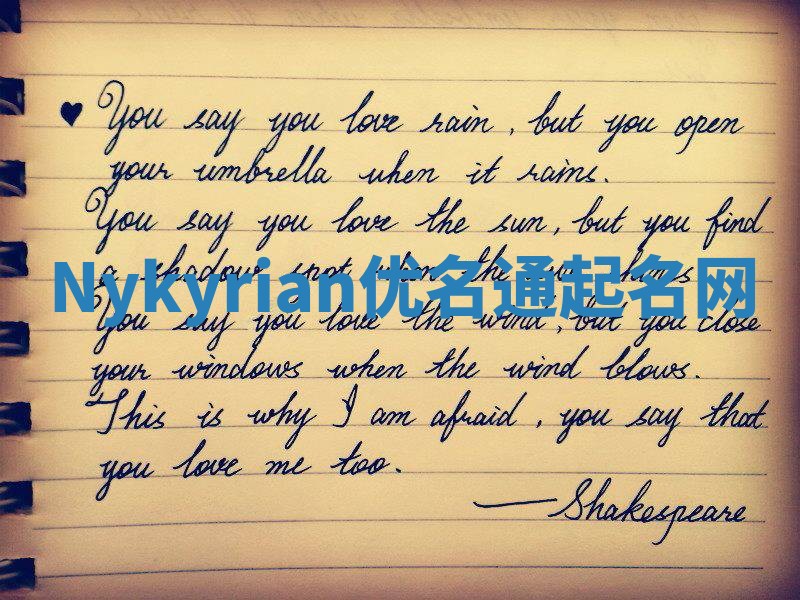 ♥ You say you love rain, but you open
your umbrella when it rains.
You say you love the sun, but you find
a shadow spot when the sun shines
Nykyrian优名通起名网
You say you love the wind, but you close
your windows when the wind blows.
This is why I am afraid, you say that
you love me too.
—Shakespeare